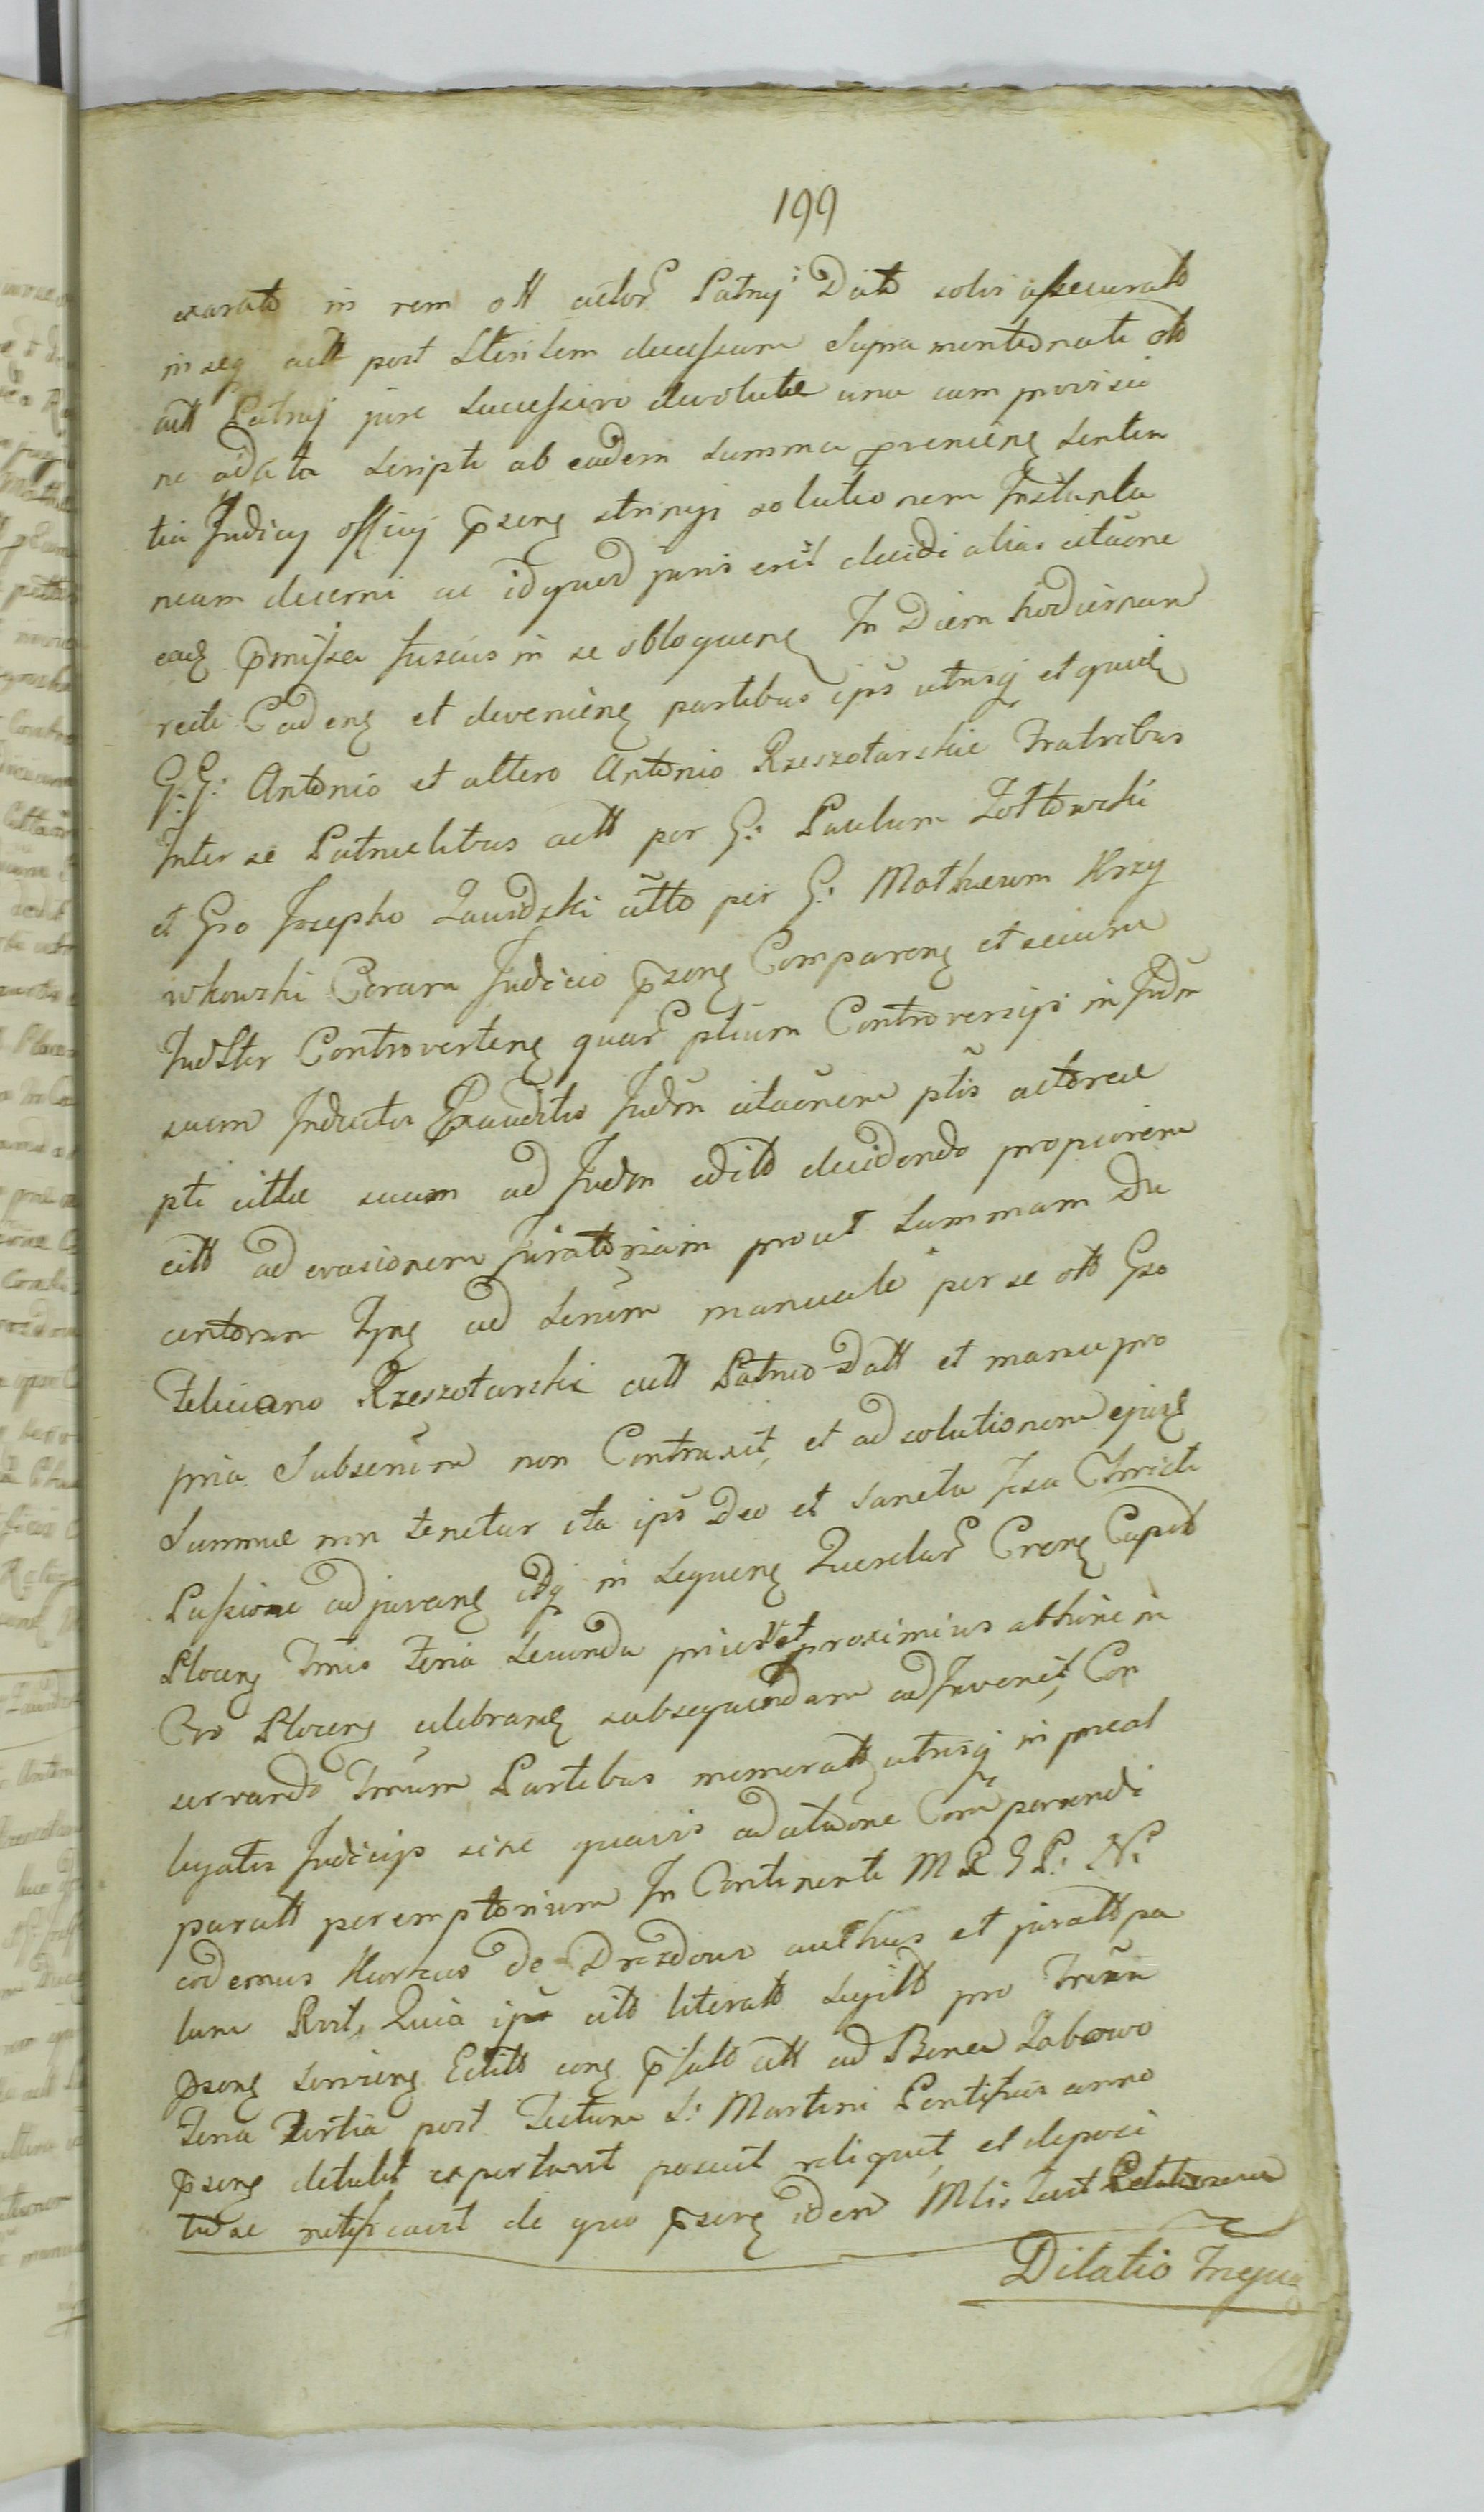 199
exarato in rem olt actor Patruj Dato solvi assecurato
in seq actt post sterilem decessum supra mentionati olt
actt Patruj jure successivo devolutae una cum provisio
ne a data scripti ab eadem summa provenien senten
tia Judicij officij p̄sens stringi solutionem Instanta
neam decerni ac id quod juris erit decidi alias citatione
ead p̄missa fusius in se obloquen In Diem hodiernam
recte Caden et devenien partibus ips utrisq et quid
G. G. Antonio et altero Antonio Rzeszotarskie Fratribus
Inter se Patruelibus actt per G. Paulum Zołtowski
et Gso Josepho Zawidzki citto per G. Mathaeum Krzy
wkowski Coram Judicio p̄sens Comparen et secum
Judltr Controverten quar ptium Controversijs in Judm
suum Inductis Exauditis Judm citationem ptis actoreae
pti cittae suum ad Judm edito decidendo propiorem
citt ad evasionem Juratoriam prout summam Du
centorum Tyn ad scrium manuale per se olt Gso
Feliciano Rzeszotarski actt Patruo Datt et manu pro
pria Subscrium non Contraxit, et ad solutionem ejusd
Summae non tenetur ita ips Deo et sancta Jesu Christi
Passione adjuvan idq in sequen Querelar Cren Capit
Plocen Tmis Feria Secunda prius et proximius abhinc in
Cro Plocen celebrand subsequendam adInvenit, Con
servando Tmum Partibus memoratt utrisq in praeal
legatis Judicijs sine quavis adcitatione Comparendi
paratt peremptorium In Continenti M P G P. N.
codemus Kurcus de Drozdowa authus et juratt pa
lam Rvit, Quia ips cito literato sigillo pro Trina
p̄sens servien Editt con p̄fato citt ad Bona Zabowo
Feria Tertia post Festum S. Martini Pontificis anno
p̄sens detulit exportavit posuit reliquit, et deposi
tu se notificavit de quo p̄sens idem Mlis fecit Relationem
Dilatio Inqui